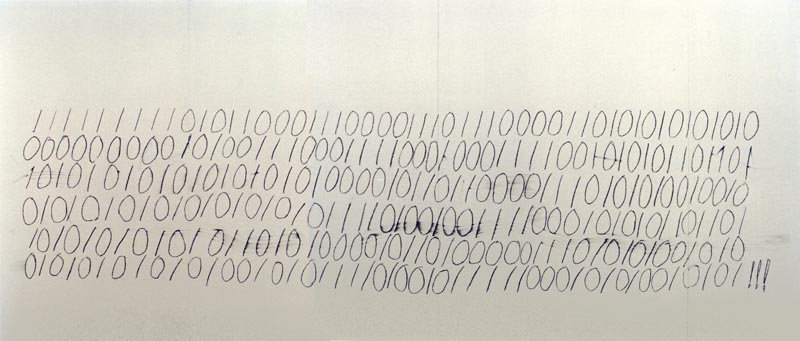 111111111101011000111000011101110000110101010101010
000000000010100111000111100010001111001010101101101
101010101010101010000101101100001110101010010010
0101010101010101011110100100111110001010101101
10101010101101010000101101000000111010101001010
0101010101010010101111010010111110001010010101!!!